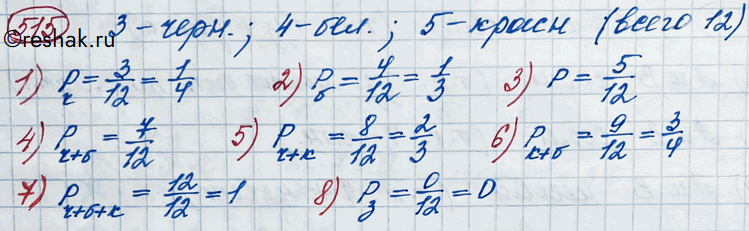 515 3-черн.; 4-бел.; 5-красн (всего 12)
©reshak.ru
1) P_ч = 3/12 = 1/4 2) P_б = 4/12 = 1/3 3) P = 5/12
4) P_ч+б = 7/12 5) P_ч+к = 8/12 = 2/3 6) P_к+б = 9/12 = 3/4
7) P_ч+б+к = 12/12 = 1 8) P_з = 0/12 = 0